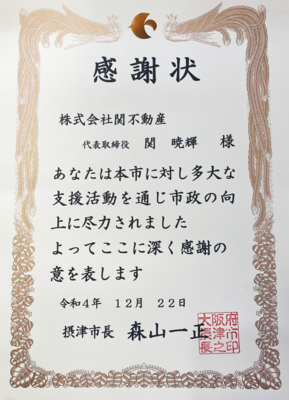 感謝状
株式会社関不動産
代表取締役 関 暁輝 様
あなたは本市に対し多大な
支援活動を通じ市政の向
上に尽力されました
よってここに深く感謝の
意を表します
令和4年 12月 22日
摂津市長 森山一正